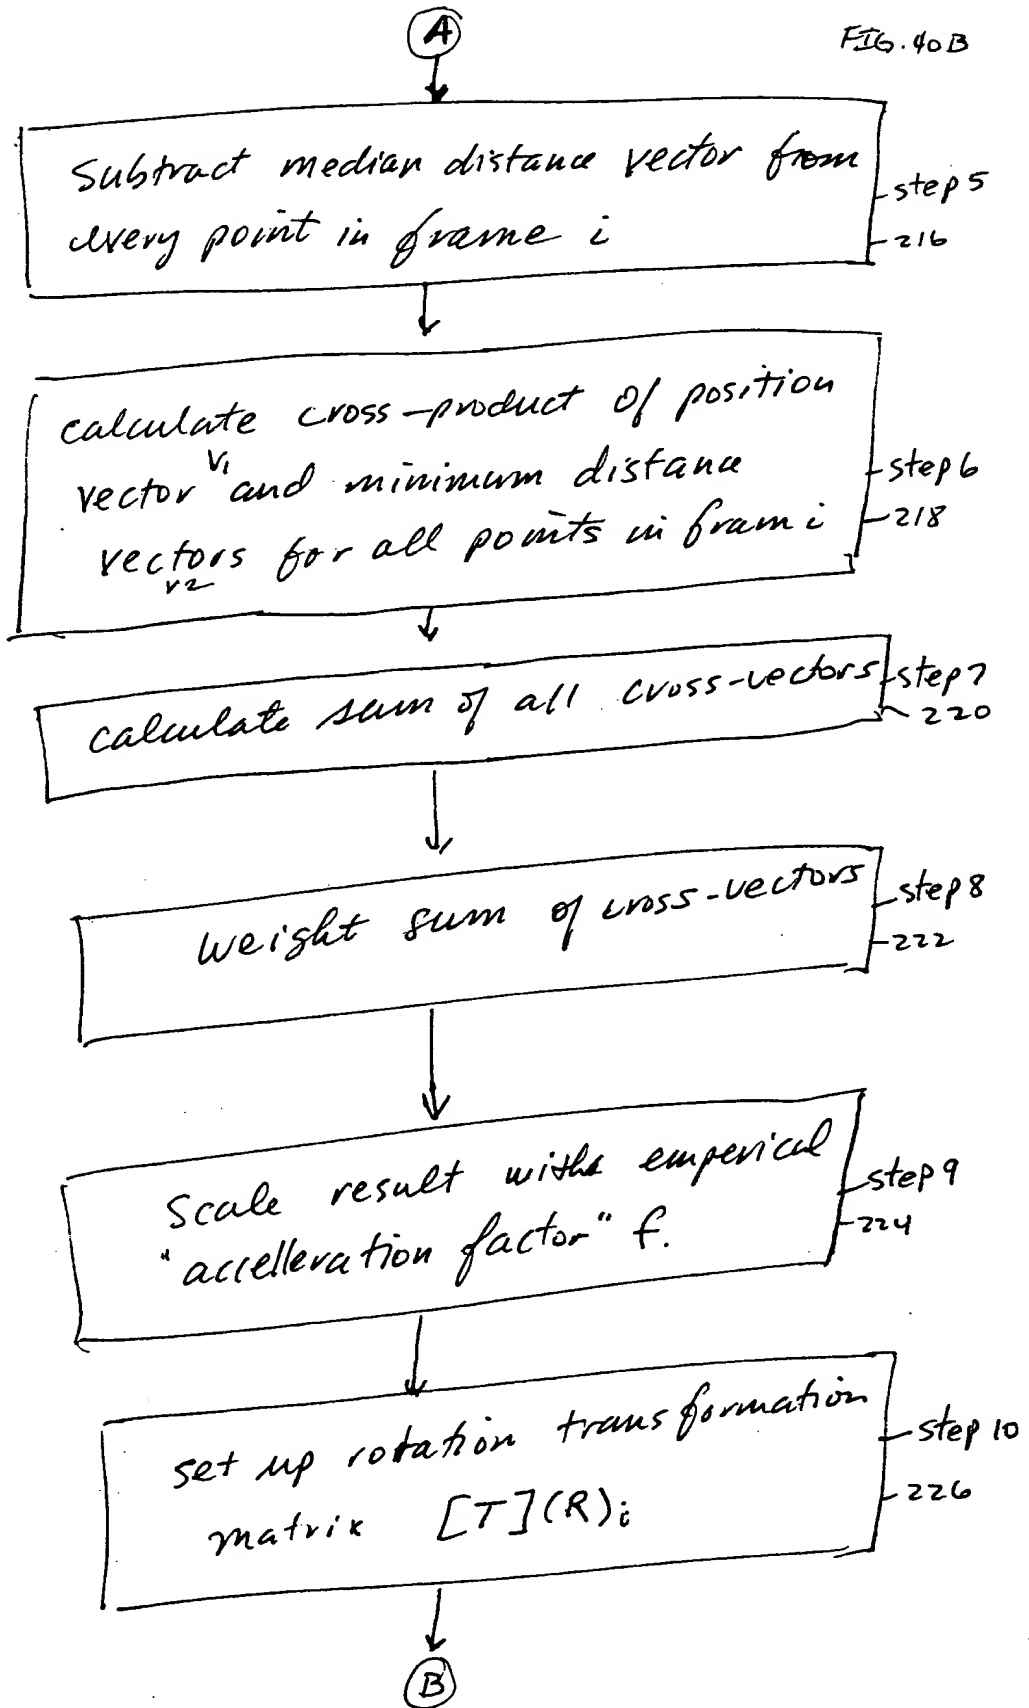 A
FIG. 40B
Subtract median distance vector from
every point in frame i
step 5
216
calculate cross-product of position
vector v1 and minimum distance
vectors v2 for all points in fram i
step 6
218
calculate sum of all cross-vectors
step 7
220
weight sum of cross-vectors
step 8
222
Scale result with a emperical
"accelleration factor" f.
step 9
224
set up rotation transformation
matrix [T](R)i
step 10
226
B